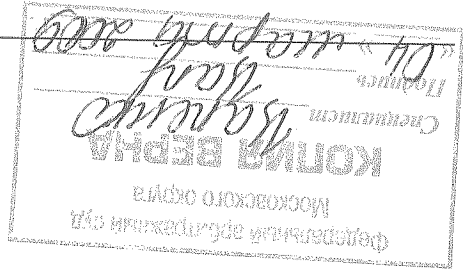 Федеральный арбитражный суд
Московского округа
КОПИЯ ВЕРНА
Специалист
Подпись
«04» марта 2009